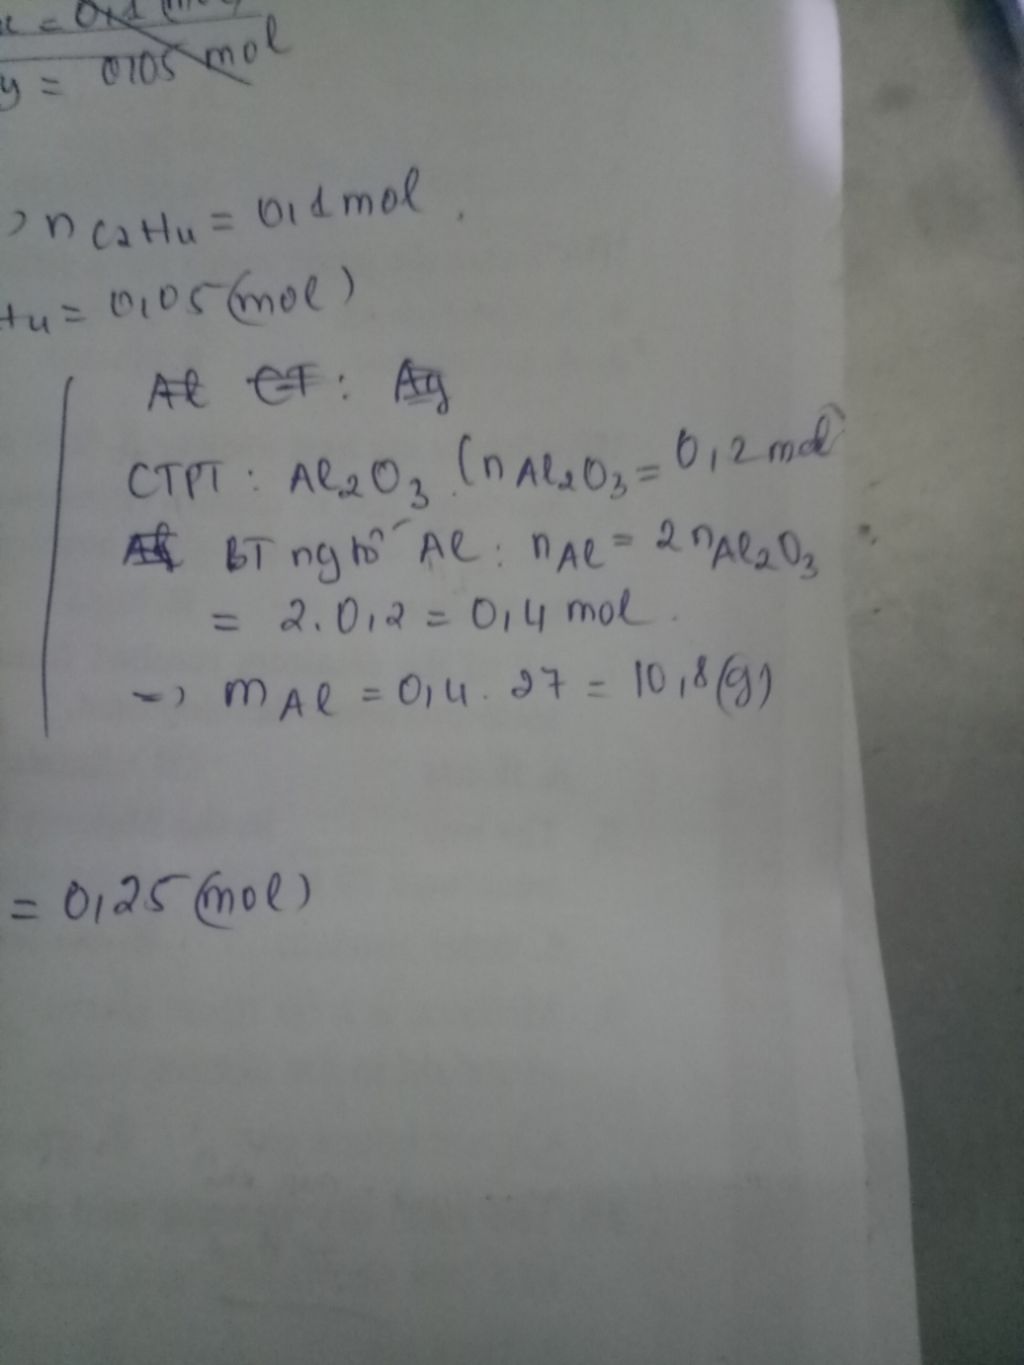 y = 0,05 mol
> n C2H4 = 0,1 mol.
H4 = 0,05 (mol)
Al CT : Ag
CTPT : Al2O3. (n Al2O3 = 0,2 mol
BT ng tố Al : nAl = 2 nAl2O3
= 2.0,2 = 0,4 mol.
-> m Al = 0,4. 27 = 10,8 (g)
= 0,25 (mol)